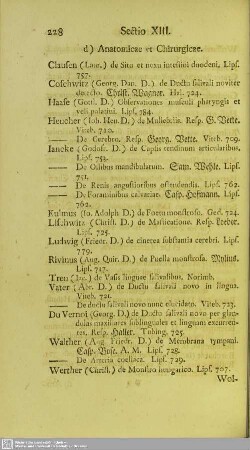 228 Sectio XIII.
d) Anatomicae et Chirurgicae.
Clausen (Laur.) de Situ et nexu intestini duodeni, Lips.
757.
Coschwitz (Georg. Dan. D.) de Ductu salivali noviter
detecto. Christ. Wagner. Hal. 724.
Haase (Gottl. D.) Observationes musculi pharyngis et
veli palatini. Lips. 784.
Heucher (Joh. Hen. D.) de Resp. G. Vette.
Viteb. 710.
—— De Cerebro. Resp. Georg. Vette. Viteb. 709.
Jancke (Godofr. D.) de Capsis tendinum articularibus.
Lips. 753.
—— De Ossibus mandibularum. Sam. Wehle. Lips.
751.
—— De Renis angustioribus Lips. 762.
—— De Foraminibus calvariae Casp. Hofmann. Lips.
762.
Kulmus (Jo. Adolph D.) de Foetu monstroso. Ged. 724.
Lischwitz (Christi. D.) de Masticatione. Resp.
Lips. 725.
Ludwig (Frieder. D.) de cinerea substantia cerebri. Lips.
779.
Rivinus (Aug. Quir. D.) de Puella monstrosa. Mylius.
Lips. 717.
Treu (Jac.) de Vasis linguae salivalibus, Norimb.
Vater (Abr. D.) de Ductu salivali novo in lingua.
Viteb. 721.
—— De ductu salivali novo nunc elucidato. Viteb. 723.
Du Vernoi (Georg. D.) de Ductu salivali novo per glan-
dulas maxillares sublinguales et linguam excurren-
tes. Resp. Haller. Tubing. 725.
Walther (Aug. Friedr. D.) de Membrana tympani.
Casp. Bose. A. M. Lips. 725.
—— De Arteria coeliaca. Lips. 729.
Werther (Christi.) de Monstro hungarico. Lips. 707.
Wol-